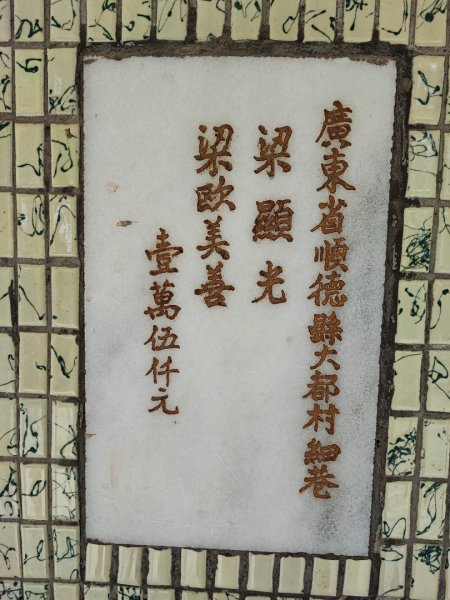 廣東省順德縣大都村細巷
梁顯光
梁歐美善
壹萬伍仟元